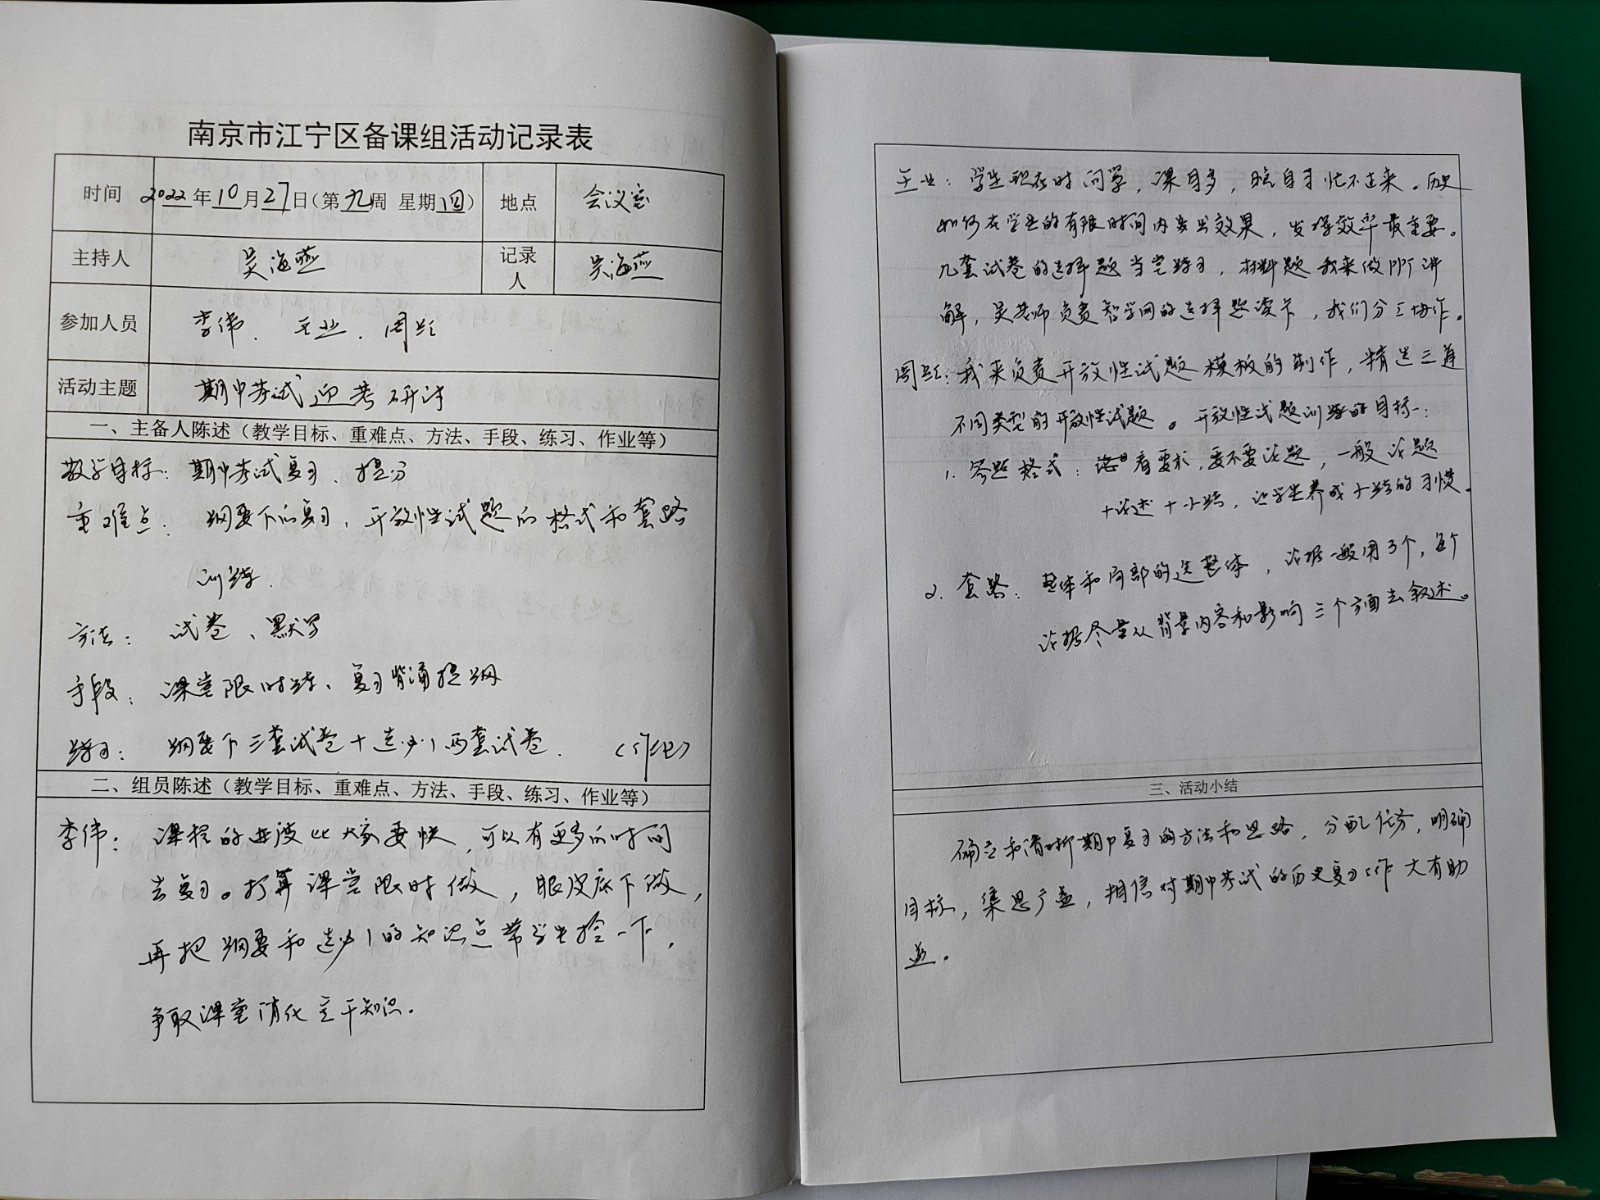 南京市江宁区备课组活动记录表
时间 2022年10月27日(第九周 星期四) 地点 会议室
主持人 吴海燕 记录人 吴海燕
参加人员 李伟、王业、周
活动主题 期中考试迎考研讨
一、主备人陈述（教学目标、重难点、方法、手段、练习、作业等）
教学目标：期中考试复习、提分
重难点：纲要下的复习，开放性试题的格式和套路
训练.
方法：试卷、默写
手段：课堂限时练、复习背诵提纲
练习：纲要下三套试卷+选必1两套试卷. (作业)
二、组员陈述（教学目标、重难点、方法、手段、练习、作业等）
李伟：课程的进度比大家要快，可以有更多的时间
去复习。打算课堂限时做，眼皮底下做，
再把纲要和选必1的知识点带学生捡一下，
争取课堂消化主干知识.
王业：学生现在时间紧，课目多，晚自习忙不过来。历史
如何在学生的有限时间内要出效果，发挥效率最重要。
几套试卷的选择题当堂练习，材料题我来做PPT讲
解，吴老师负责智学网的选择题读卡，我们分工协作。
周：我来负责开放性试题模板的制作，精选三道
不同类型的开放性试题。开放性试题训练的目标：
1. 答题格式：看要求，要不要论题，一般论题
+论述+小结，让学生养成小结的习惯。
2. 套路：整体和局部的选整体，论据一般用3个，每个
论据尽量从背景内容和影响三个方面去叙述。
三、活动小结
确立和清晰期中复习的方法和思路，分配任务，明确
目标，集思广益，相信对期中考试的历史复习工作大有助
益。